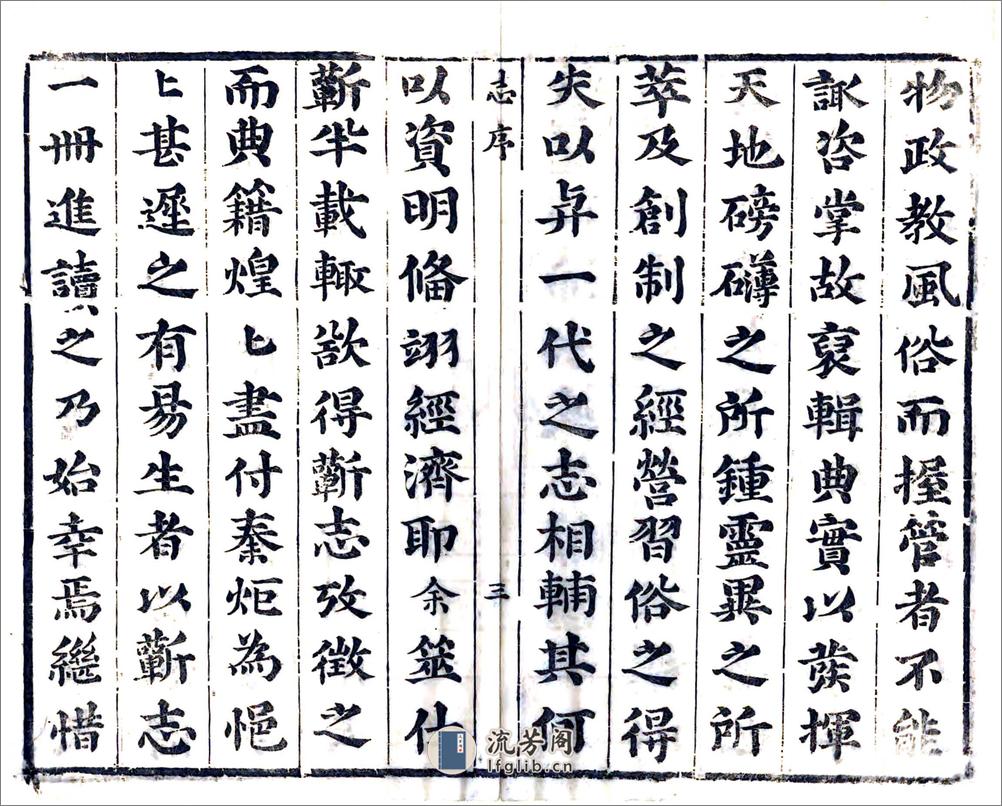 物政教風俗而握管者不能
諏咨掌故裒輯典實以發揮
天地磅礴之所鍾靈異之所
萃及創制之經營習俗之得
失以弁一代之志相輔其何
志序
三
以資明備翊經濟耶余筮仕
蘄半載輙欲得蘄志攷徵之
而典籍煌匕盡付秦炬為悒
匕甚遲之有易生者以蘄志
一冊進讀之乃始幸焉繼惜
流芳阁
lfglib.cn